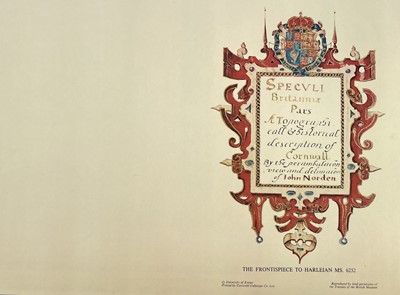 SPECVLI
Britanniæ
Pars
A Topographi
call & historical
description of
Cornwall
By the perambulacion
view and delineacion
of Iohn Norden
THE FRONTISPIECE TO HARLEIAN MS. 6252
© University of Exeter
Reproduced by kind permission of
the Trustees of the British Museum